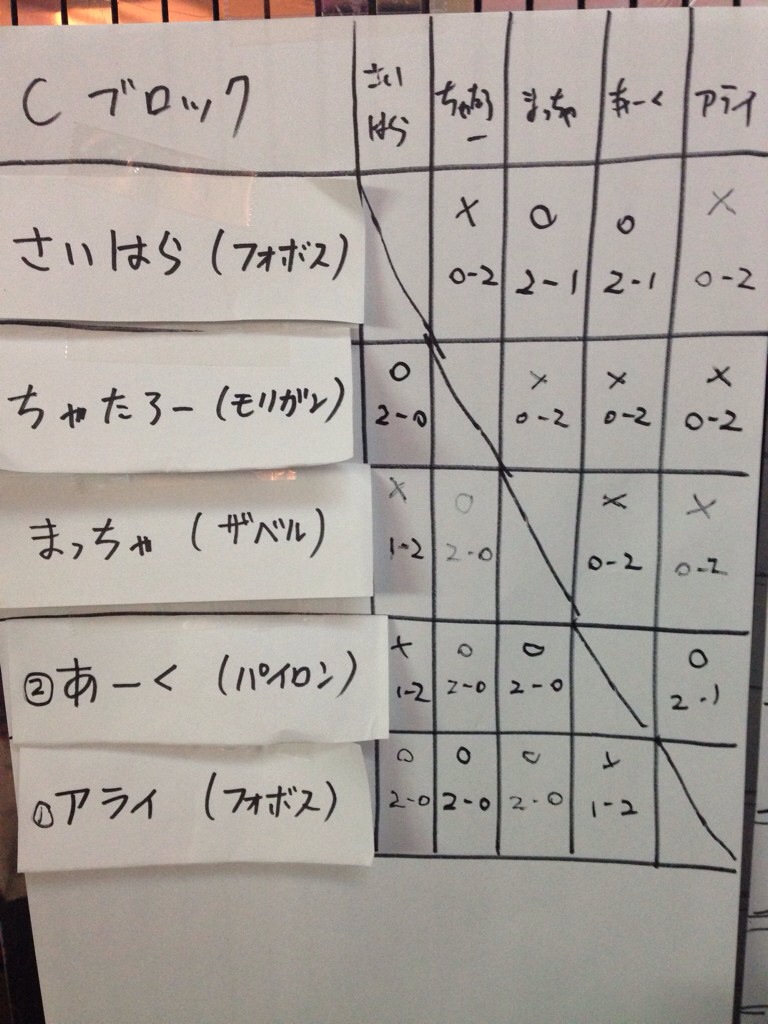 Cブロック さい ちゃたろ まっちゃ あーく アライ
はら ー
さいはら (フォボス) × 0-2 ○ 2-1 ○ 2-1 × 0-2
ちゃたろー (モリガン) ○ 2-0 × 0-2 × 0-2 × 0-2
まっちゃ (ザベル) × 1-2 ○ 2-0 × 0-2 × 0-2
②あーく (パイロン) × 1-2 ○ 2-0 ○ 2-0 ○ 2-1
①アライ (フォボス) ○ 2-0 ○ 2-0 ○ 2-0 × 1-2